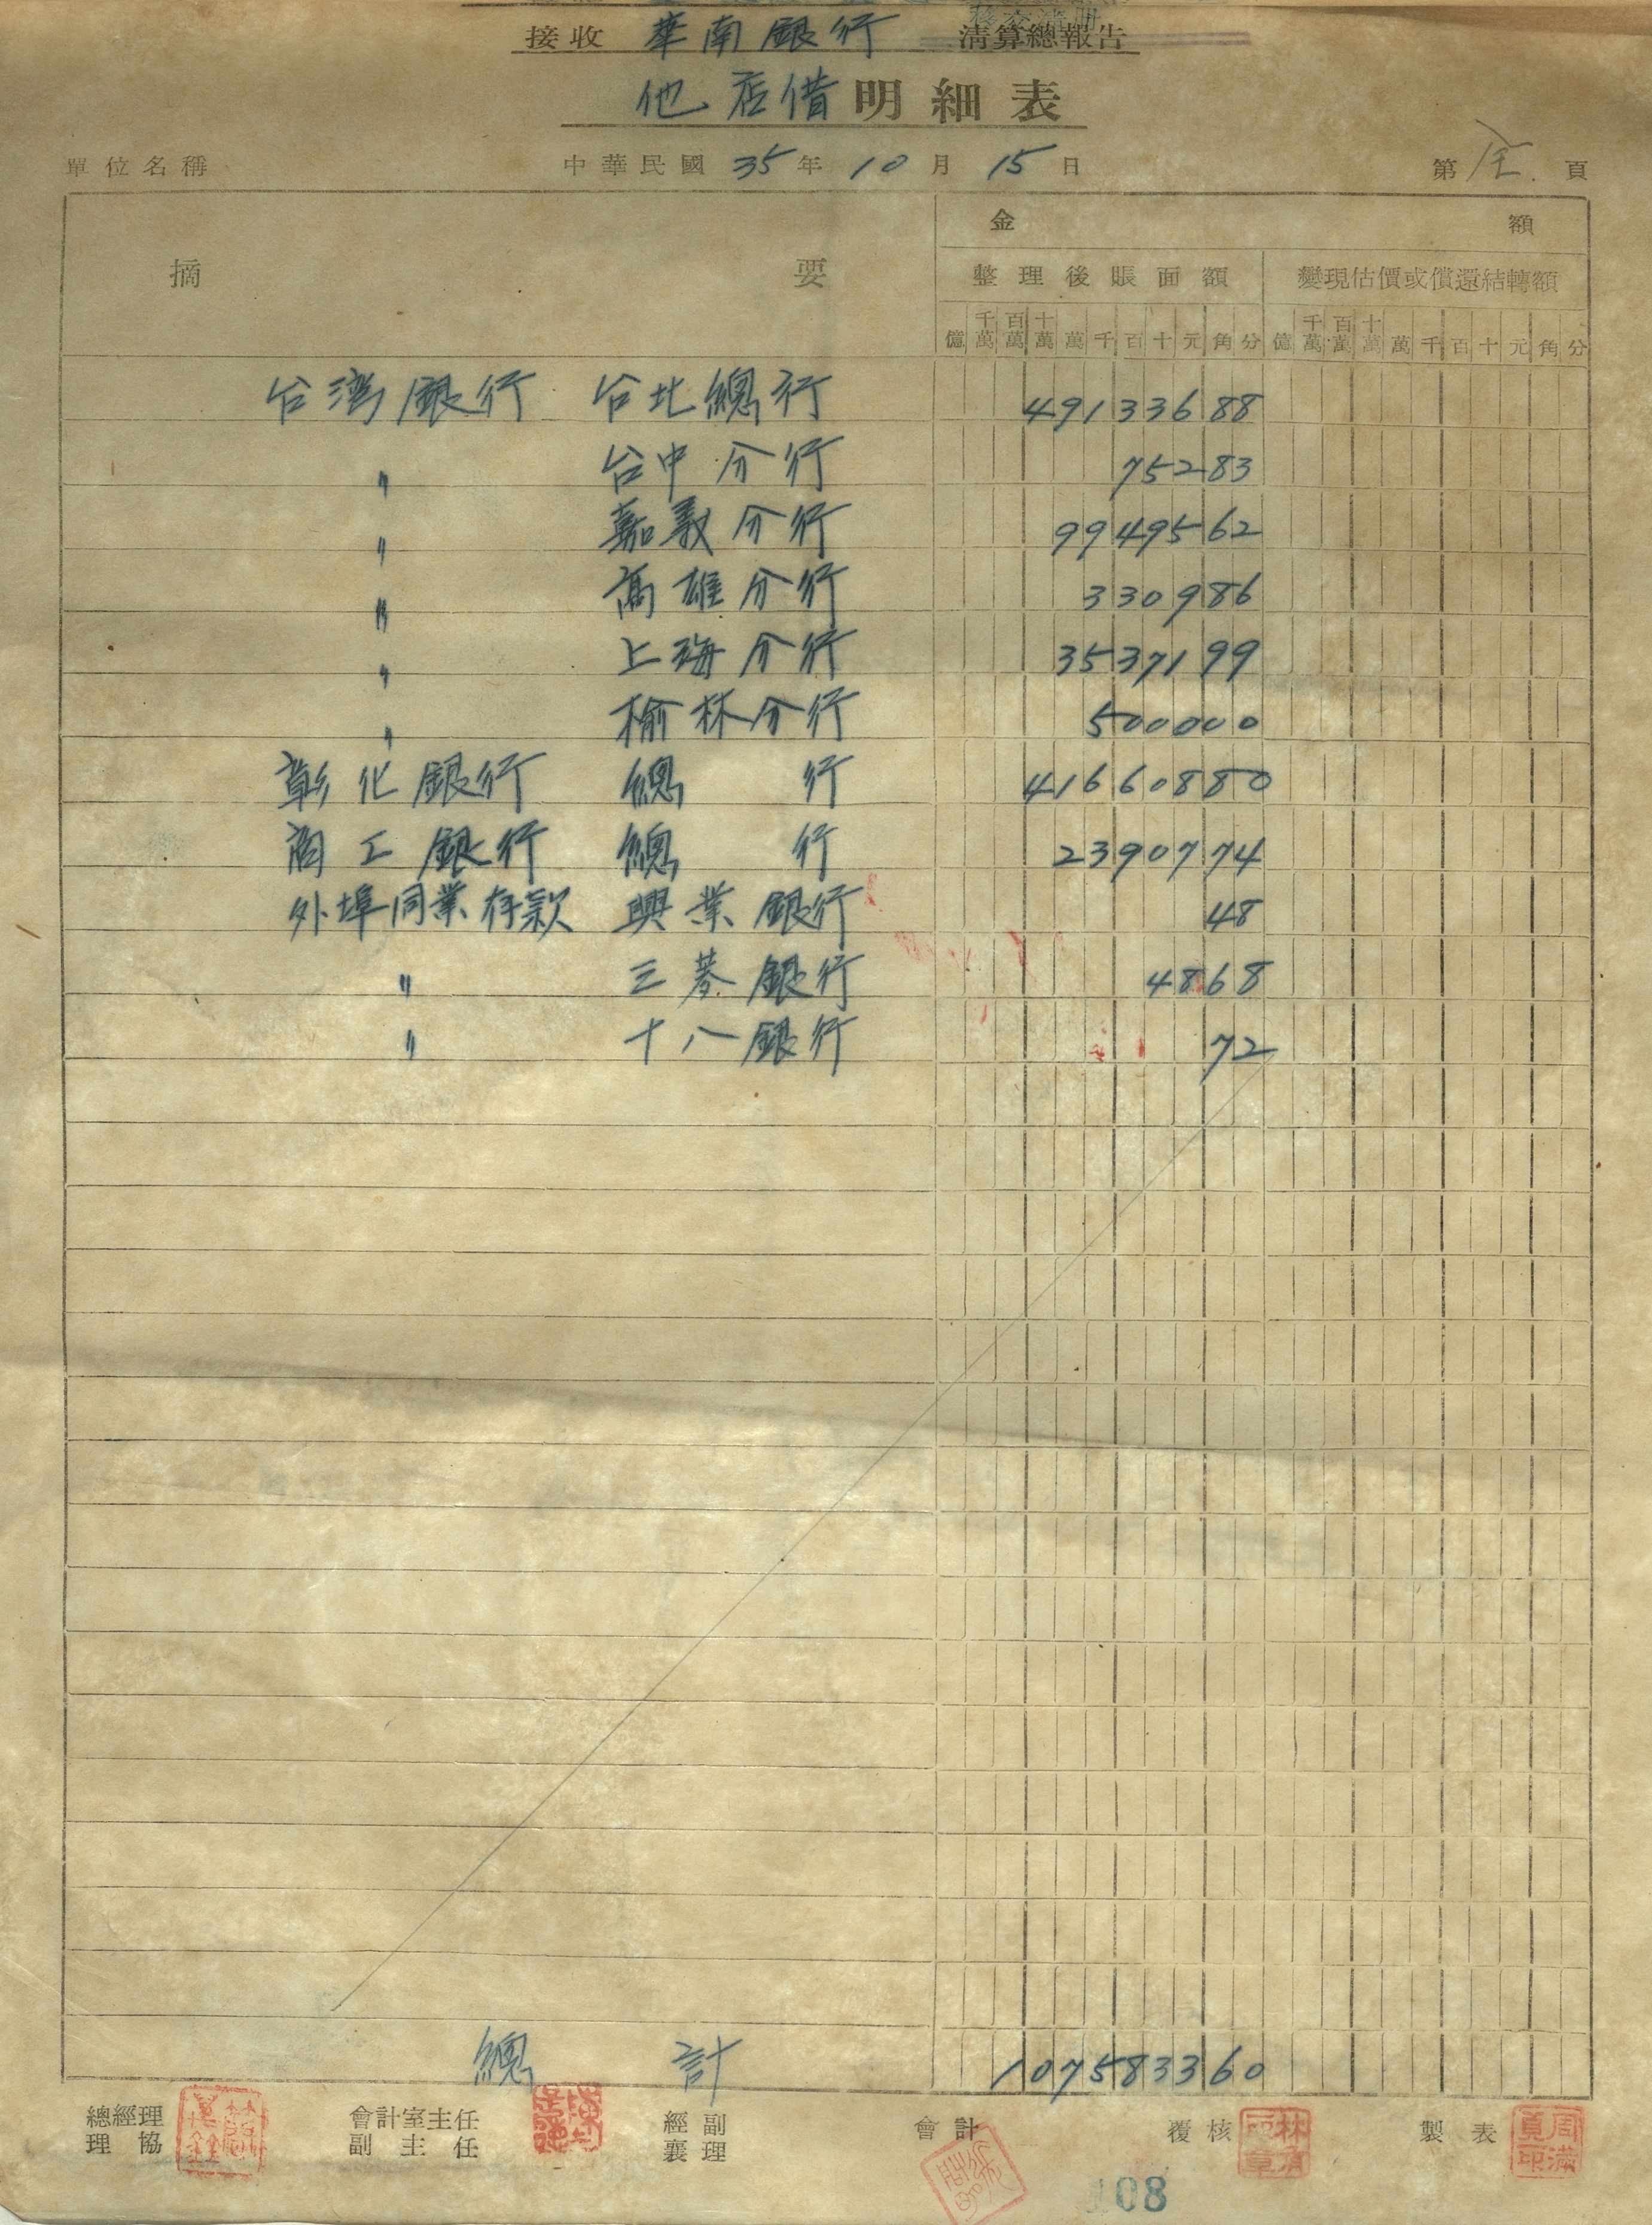 接收 華南銀行 清算總報告
他店借明細表
單位名稱 中華民國 35 年 10 月 15 日 第 全 頁
摘要 金額
整理後賬面額 變現估價或償還結轉額
億 千萬 百萬 十萬 萬 千 百 十 元 角 分 億 千萬 百萬 十萬 萬 千 百 十 元 角 分
台湾銀行 台北總行 49133688
〃 台中分行 75283
〃 嘉義分行 9949562
〃 高雄分行 330986
〃 上海分行 3537199
〃 榆林分行 500000
彰化銀行 總行 41660880
商工銀行 總行 2390774
外埠同業存款 興業銀行 48
〃 三菱銀行 4868
〃 十八銀行 72
總計 107583360
總經理 會計室主任 經副 會計 覆核 製表
協理 副主任 襄理
108